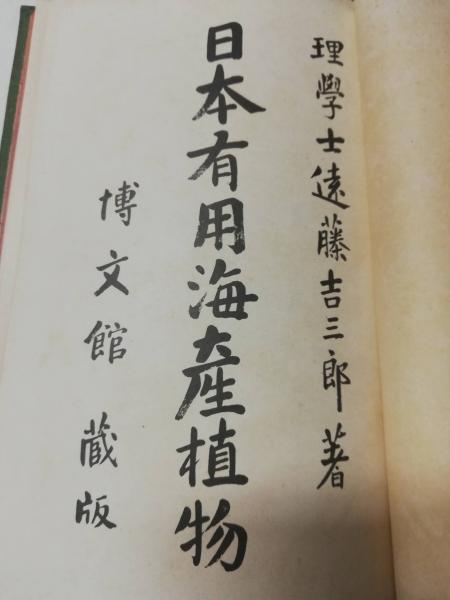 理學士遠藤吉三郎著
日本有用海產植物
博文館蔵版